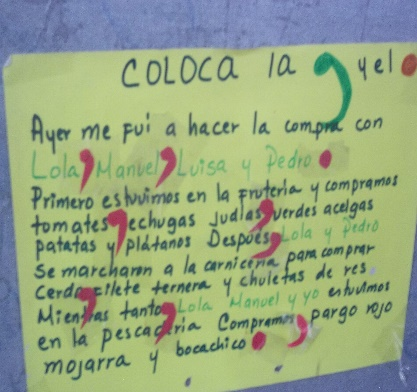 COLOCA la , y el .
Ayer me fui a hacer la compra con
Lola, Manuel, Luisa y Pedro.
Primero estuvimos en la frutería y compramos
tomates, lechugas Judías, verdes acelgas
patatas y plátanos Después, Lola y Pedro
se marcharon a la carnicería para comprar
Cerdo, filete ternera y chuletas de res
Mientras tanto, Lola Manuel y yo estuvimos
en la pescadería Compramos, pargo rojo
mojarra y bocachico.